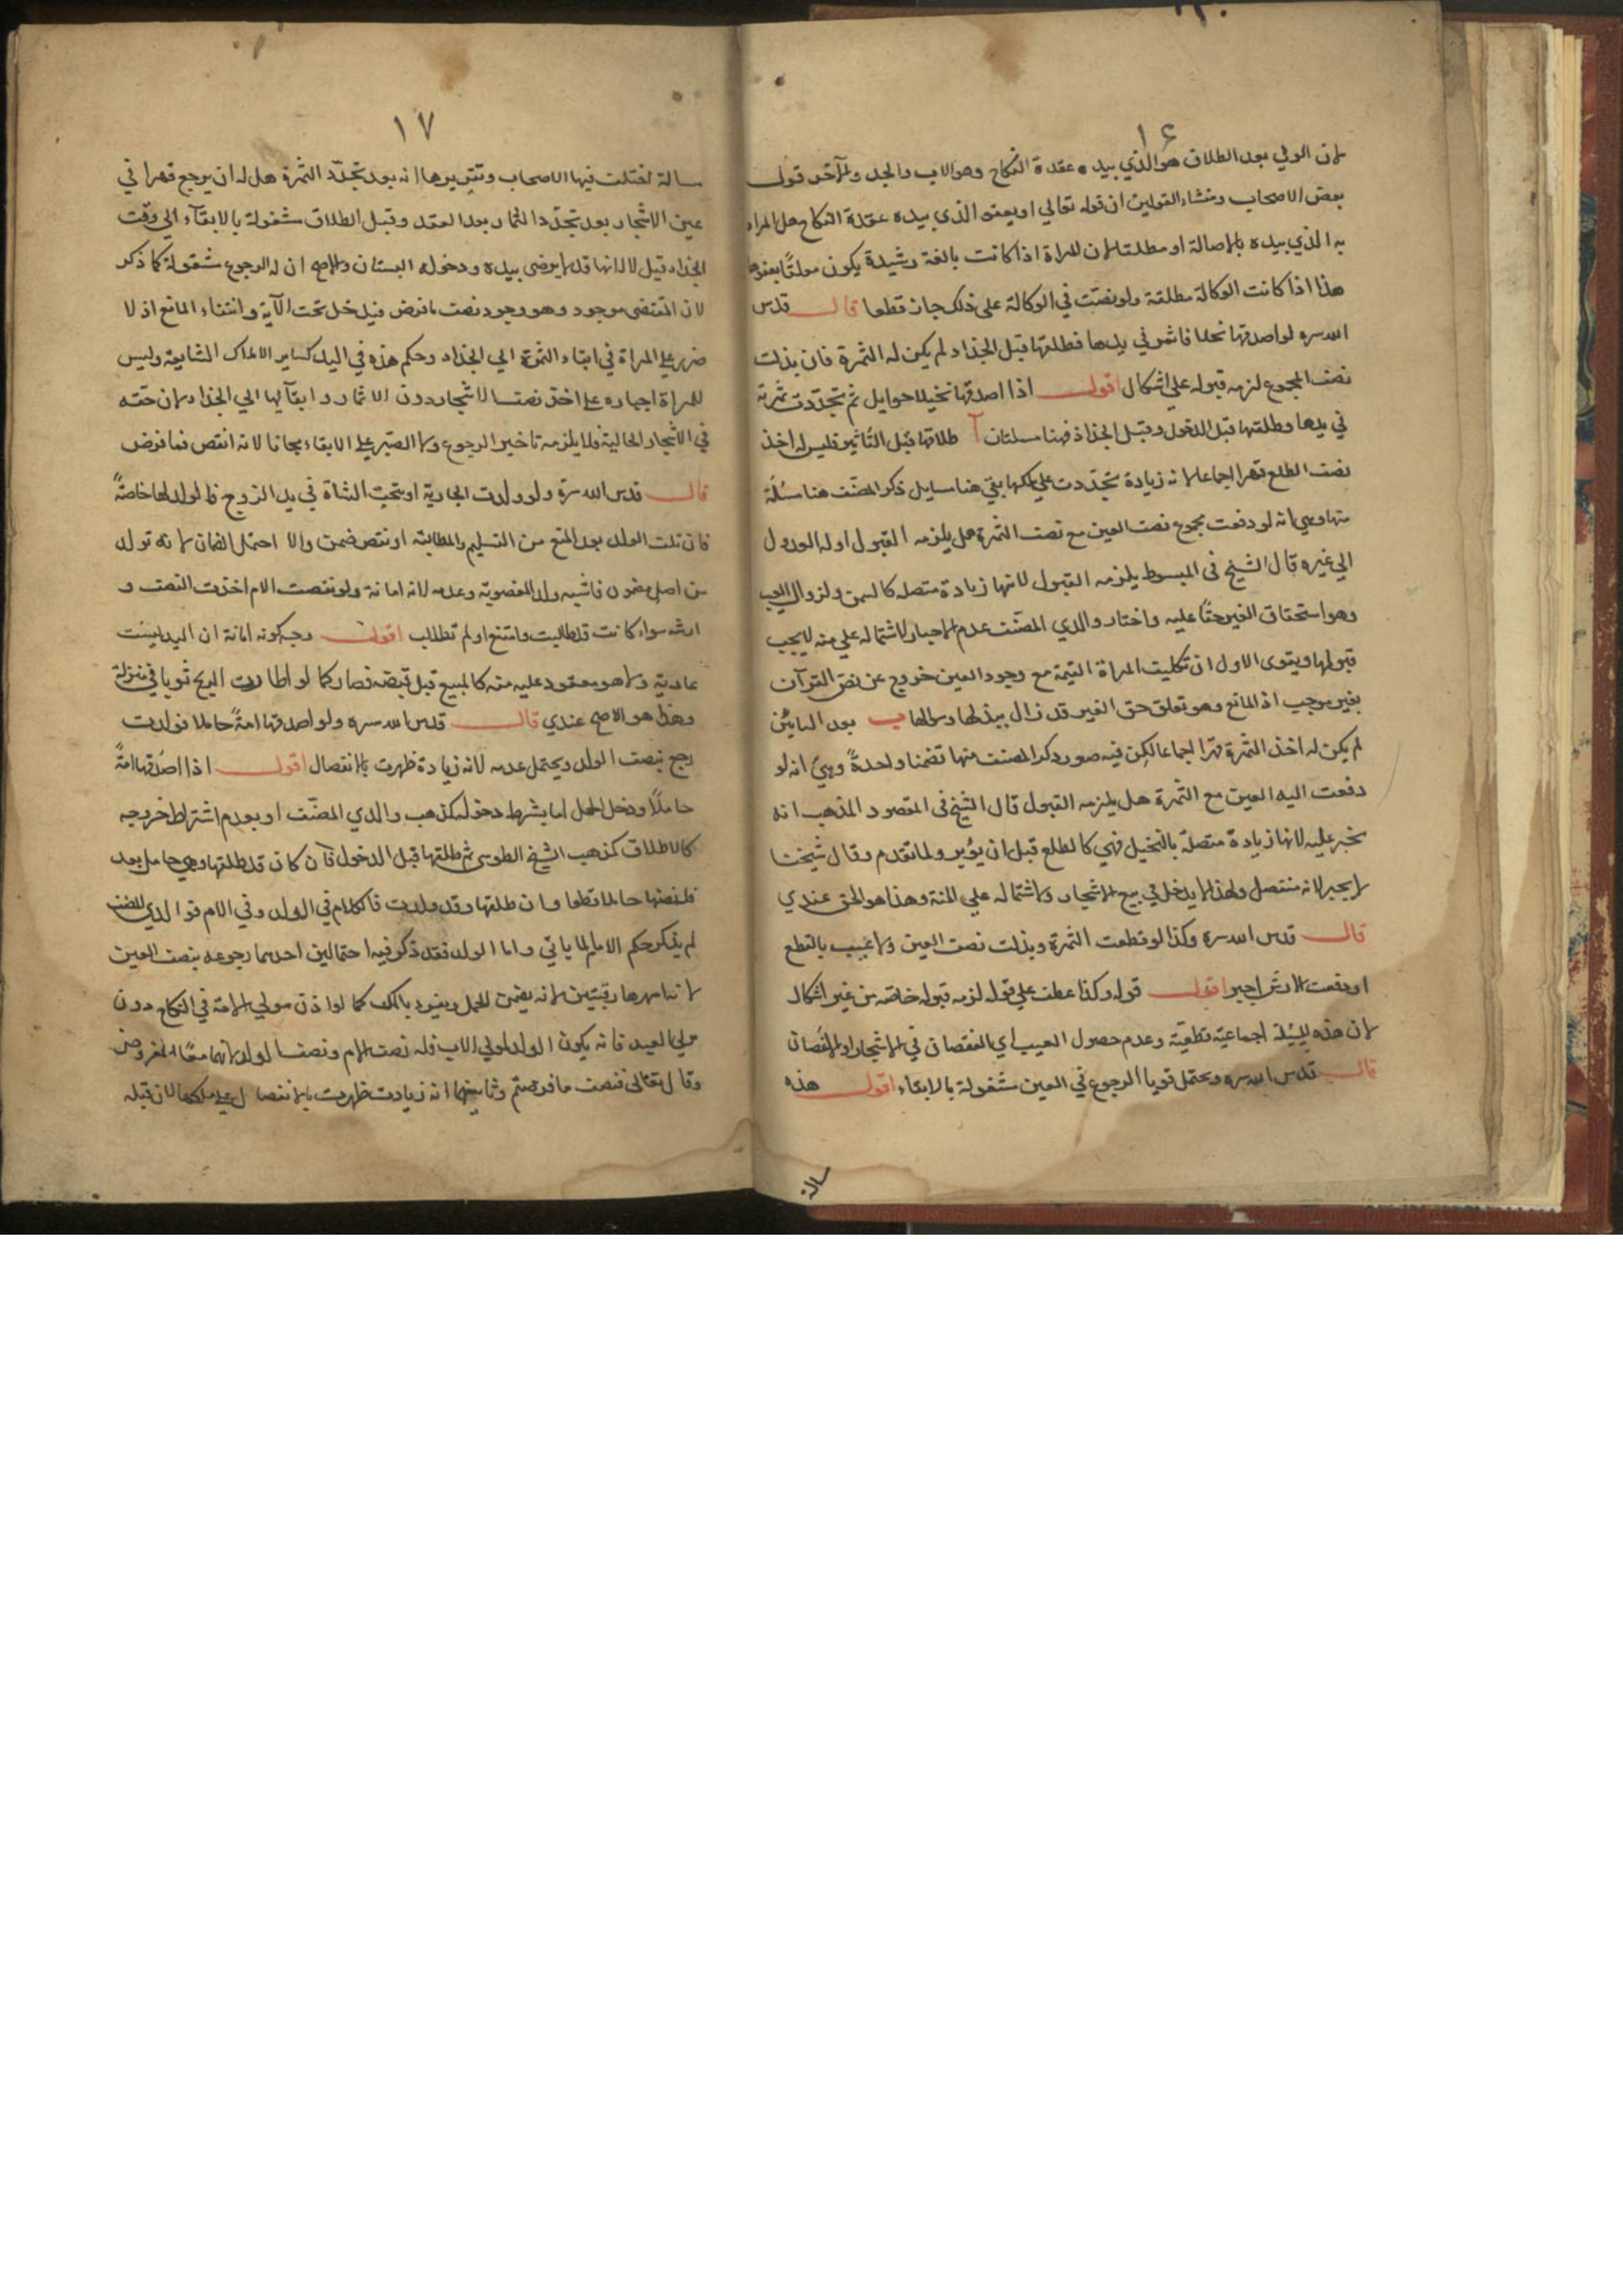 ١٤
لان الولي بعد الطلاق هو الذي بيده عقدة النكاح وهو الاب والجد والآخر قول
بعض الاصحاب ومنشاء القولين ان قوله تعالي او يعفو الذي بيده عقدة النكاح هل المراد
به الذي بيده بالاصالة او مطلقا لان للمراة اذا كانت بالغة رشيدة يكون
هذا اذا كانت الوكالة مطلقة ولو نصّت في الوكالة على ذلك جاز قطعا قال قدس
الله سره لو اصدقها نخلا فاثمر في يدها فطلقها قبل الجذاذ لم يكن له الثمرة فان بذلت
نصف المجموع لزمه قبوله علي اشكال اقول اذا اصدقها نخيلا حوايل ثم تجدّدت ثمرته
في يدها وطلقها قبل الدخول وقبل الجذاذ فهنا مسئلتان آ طلاقها قبل التأبير فليس له اخذ
نصف الطلع قهرا اجماعا لانه زيادة تجدّدت علي ملكها بقي هنا مسايل ذكر المصنّف هنا مسئلة
منها وهي انه لو دفعت مجموع نصف العين مع نصف الثمرة هل يلزمه القبول او له العدول
الي غيره قال الشيخ في المبسوط يلزمه القبول لانها زيادة متصلة كالسمن ولزوال العيب
وهو استحقاق الغير حقّا عليه واختار والدي المصنّف عدم الاجبار لاشتماله علي منه لا يجب
قبولها ويقوى الاول ان تكليف المراة القيمة مع وجود العين خروج عن نصّ القرآن
بغير موجب اذ المانع وهو تعلق حق الغير قد زال ببذلها وسؤالها ب بعد التأبير
لم يكن له اخذ الثمرة قهرا اجماعا لكن فيه صور ذكر المصنف منها تضمنا واحدة وهي انه لو
دفعت اليه العين مع الثمرة هل يلزمه القبول قال الشيخ في المقصود المذهب انه
يجبر عليه لانها زيادة متصلة بالنخيل فهي كالطلع قبل ان يؤبر ولما تقدم وقال شيخنا
لا يجبر لانه منفصل ولهذا لا يدخل في بيع الاشجار ولاشتماله علي المنة وهذا هو الحق عندي
قال قدس الله سره وكذا لو قطعت الثمرة وبذلت نصف العين ولا عيب بالقطع
او دفعت الارش اجبر اقول قوله وكذا عطف علي قوله لزمه قبوله خاصة من غير اشكال
لان هذه المسئلة اجماعيّة قطعيّة وعدم حصول العيب اي النقصان في الاشجار او الاغصان
قال قدس الله سره ويحتمل قويا الرجوع في العين مشغولة بالابقاء اقول هذه
مسالة
١٧
مسالة اختلف فيها الاصحاب وتقريرها انه بعد تجدّد الثمرة هل له ان يرجع قهرا في
عين الاشجار بعد تجدّد الثمار بعد العقد وقبل الطلاق مشغولة بالابقاء الي وقت
الجذاذ قيل لا لانها قد لا يرضى بيده ودخوله البستان والاصح ان له الرجوع مشغولة كما ذكر
لان المقتضى موجود وهو وجود نصف ما فرض فيدخل تحت الآية وانتفاء المانع اذ لا
ضرر علي المراة في ابقاء الثمرة الي الجذاذ وحكم هذه في اليد كساير الاملاك الشايعة وليس
للمراة اجباره علي اخذ نصف الاشجار دون الاثمار وابقآئها الي الجذاذ لان حقه
في الاشجار الخالية فلا يلزمه تاخير الرجوع ولا الصبر علي الابقاء مجانا لانه انقص فما فرض
قال قدس الله سره ولو ولدت الجارية او نتجت الشاة في يد الزوج فالولد لها خاصّة
فان تلف الولد بعد المنع من التسليم والمطالبة او نقص ضمن والا احتمل الضمان لانه تولد
من اصل مضمون فاشبه ولد المغصوبة وعدمه لانه امانة ولو نقصت الام اخذت النصف و
ارشه سواء كانت قد طالبت وامتنع او لم تطلب اقول وجه كونه امانة ان اليد ليست
عادية ولا هو معقود عليه منه كالمبيع قبل قبضه فصار كما لو اطارت الريح ثوبا في منزله
وهذا هو الاصح عندي قال قدس الله سره ولو اصدقها امة حاملا فولدت
رجع بنصف الولد ويحتمل عدمه لانه زيادة ظهرت بالانفصال اقول اذا اصدقها امة
حاملا ودخل الحمل اما بشرط دخوله كمذهب والدي المصنّف او بعدم اشتراط خروجه
كالاطلاق كمذهب الشيخ الطوسي ثم طلقها قبل الدخول فان كان قد طلقها وهي حامل بعد
فله نصفها حاملا قطعا وان طلقها وقد ولدت فالكلام في الولد وفي الام فوالدي المصنف
لم يذكر حكم الام لما ياتي واما الولد فقد ذكر فيه احتمالين احدهما رجوعه بنصف العين
لانه امهرها رقبتين لانه يضمن الحمل وينفرد بالملك كما لو اذن مولي الامة في النكاح دون
مولي العبد فانه يكون الولد لمولي الاب فله نصف الام ونصف الولد لانهما معا المفروض
وقال تعالى فنصف ما فرضتم وثانيهما انه زيادت ظهرت بالانفصال علي ملكها لان قبله